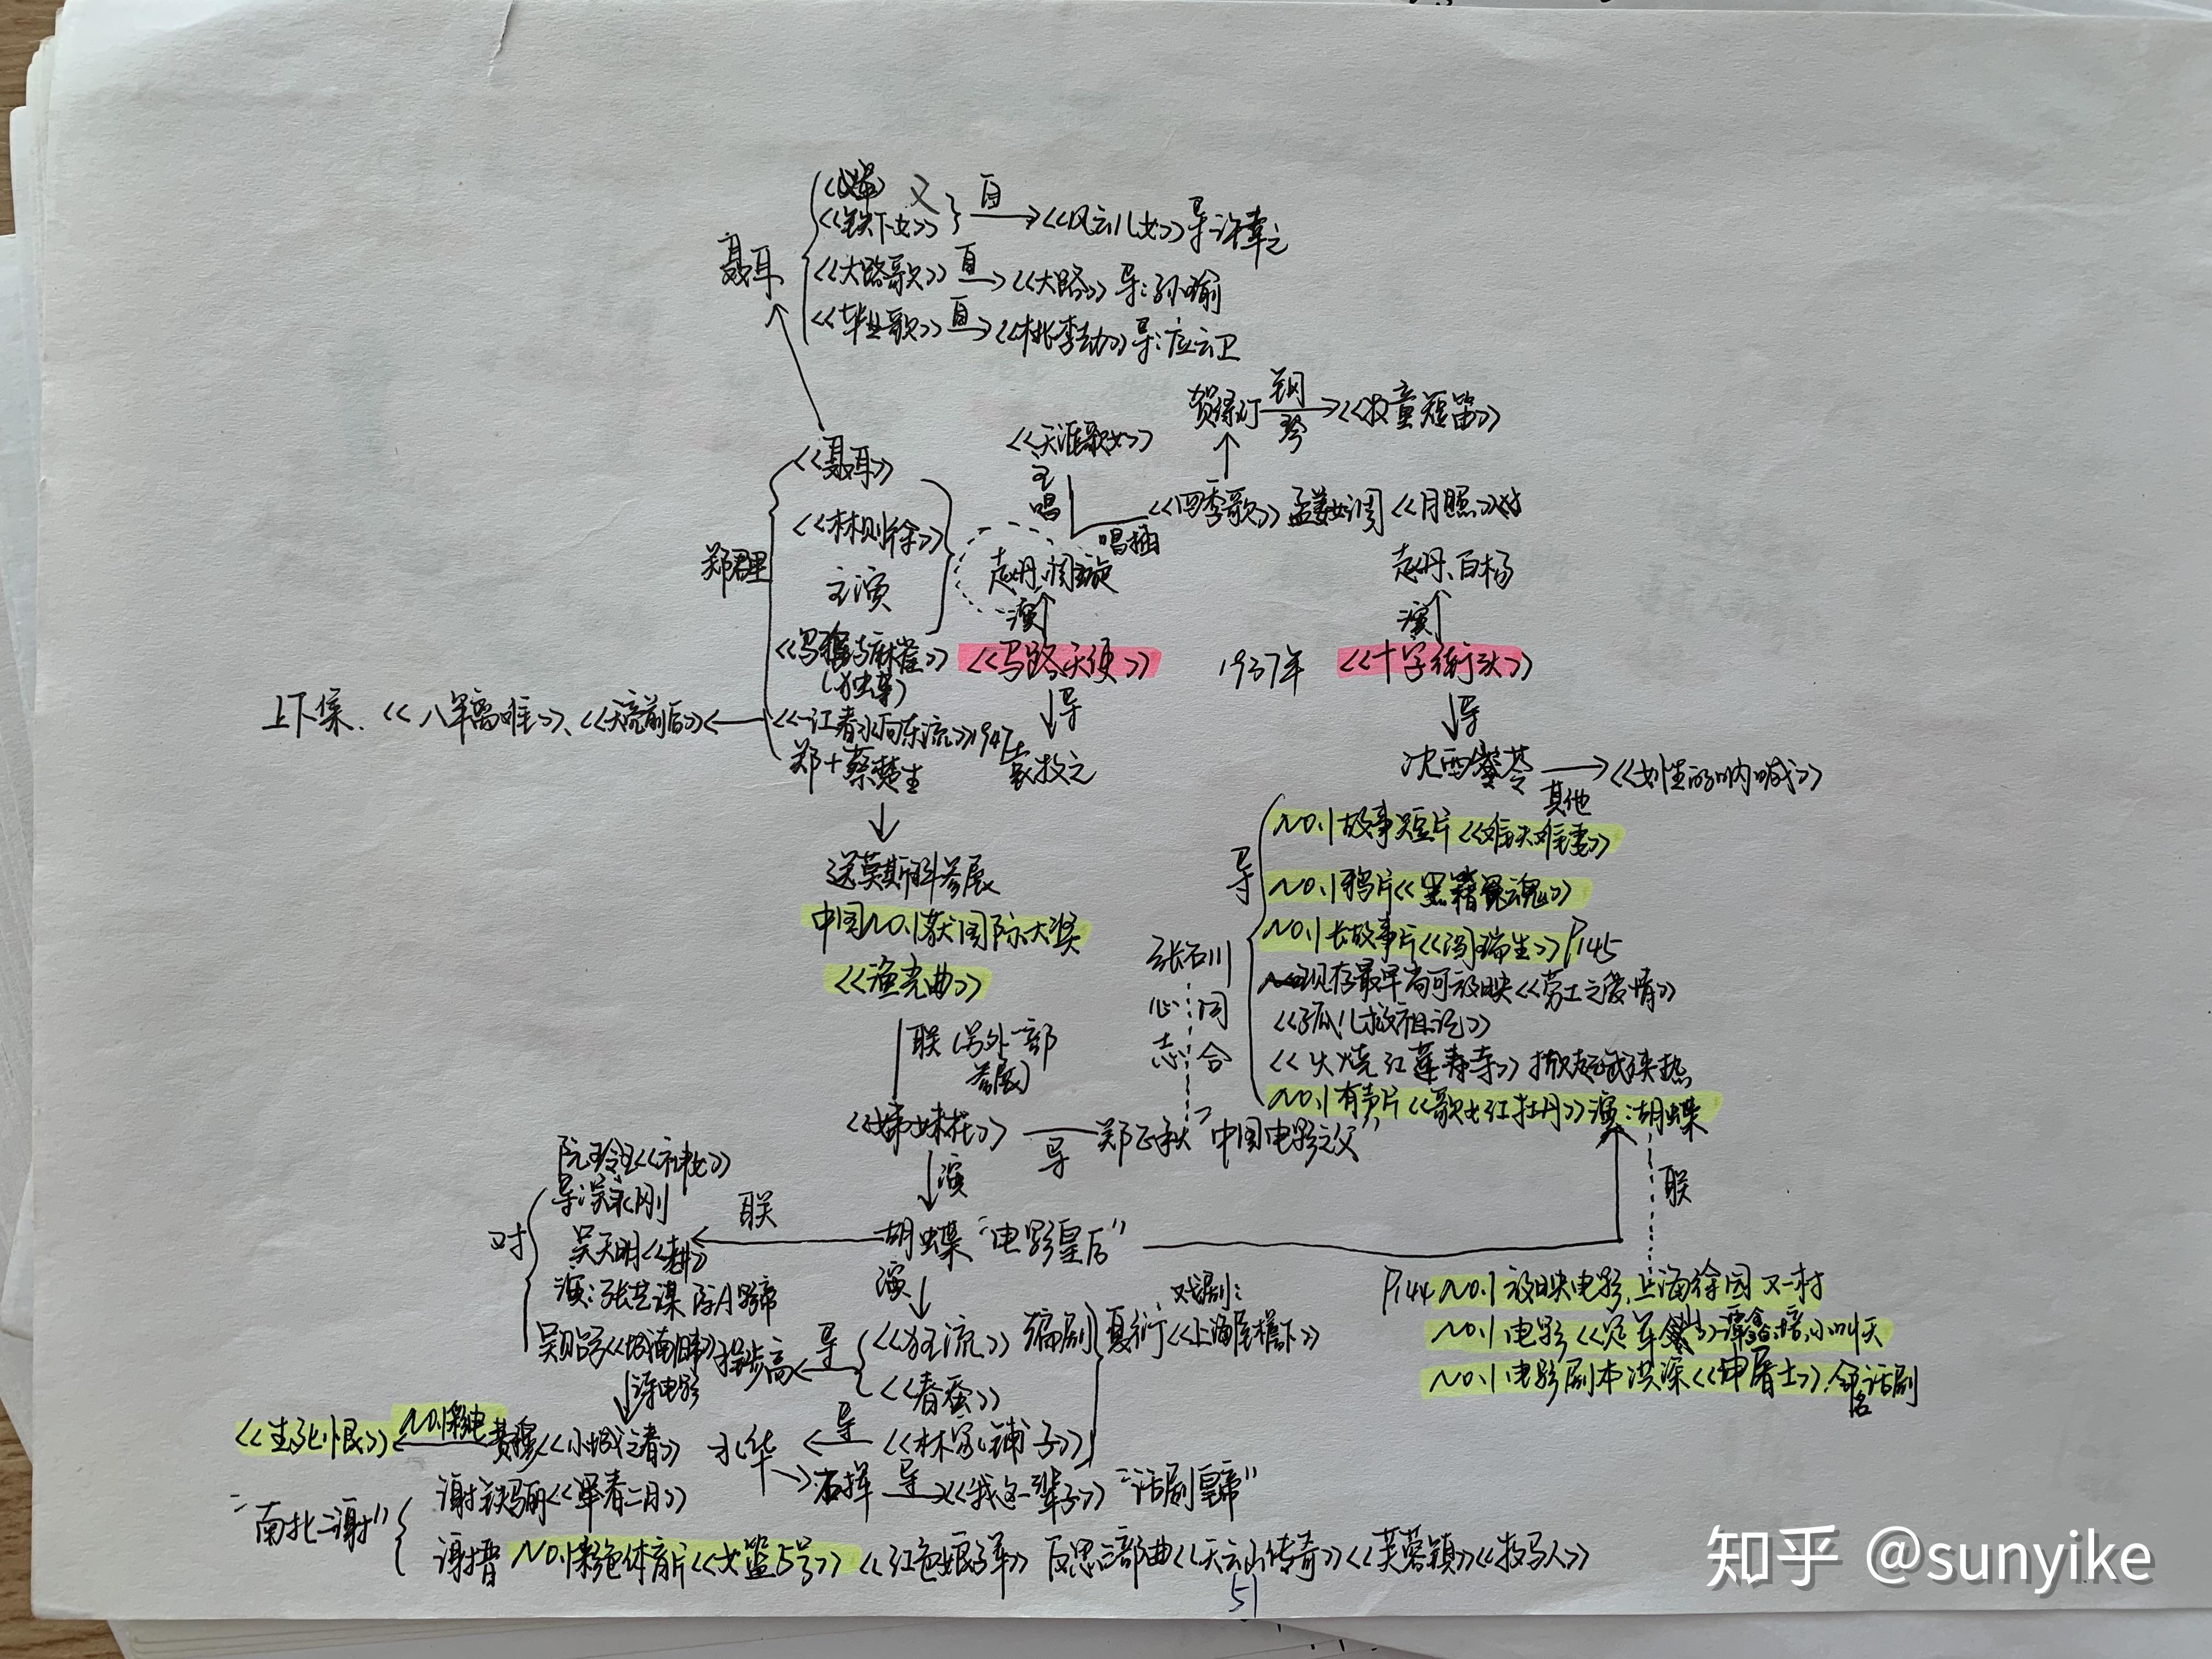 《义军》又
《铁下女》
自
《风云儿女》导:许幸之
聂耳
《大路歌》自《大路》导:孙瑜
《毕业歌》自《桃李劫》导:应云卫
贺绿汀 钢琴《牧童短笛》
《天涯歌女》
主唱
《聂耳》
《四季歌》孟姜女调《月照》对
唱插
《林则徐》
郑君里
赵丹、周璇
赵丹、白杨
主演
演
演
《乌鸦与麻雀》
(独幕)
《马路天使》 1937年 《十字街头》
上下集.《八年离难》、《天亮前后》
《一江春水向东流》1947年
导
导
郑+蔡楚生
袁牧之
沈西苓
其他
《女性的呐喊》
送莫斯科参展
中国NO.1获国际大奖
《渔光曲》
导
NO.1故事短片《难夫难妻》
NO.1鸦片《黑籍冤魂》
NO.1长故事片《阎瑞生》P145
张石川
现存最早尚可放映《劳工之爱情》
心 同
《孤儿救祖记》
志 合
《火烧红莲寺》掀起武侠热
NO.1有声片《歌女红牡丹》演:胡蝶
联(另外一部
参展)
《姊妹花》
导
郑正秋"中国电影之父"
联
阮玲玉《神女》
导:吴永刚
演
对
联
胡蝶"电影皇后"
吴天明《老井》
演:张艺谋 际A影帝
演
P144 NO.1放映电影,上海徐园又一村
NO.1电影《定军山》谭鑫培,小叫天
NO.1电影剧本洪深《申屠士》,命名话剧
吴贻弓《城南旧事》
程步高
导
《狂流》编剧
夏衍
戏剧:
《上海屋檐下》
诗电影
《春蚕》
《生死恨》NO.1彩电 费穆《小城之春》
水华
导
《林家铺子》
石挥 导《我这一辈子》"话剧皇帝"
"南北二谢"
谢铁骊《早春二月》
谢晋 NO.1彩色体育片《女篮5号》《红色娘子军》反思三部曲《天云山传奇》《芙蓉镇》《牧马人》
51
知乎 @sunyike